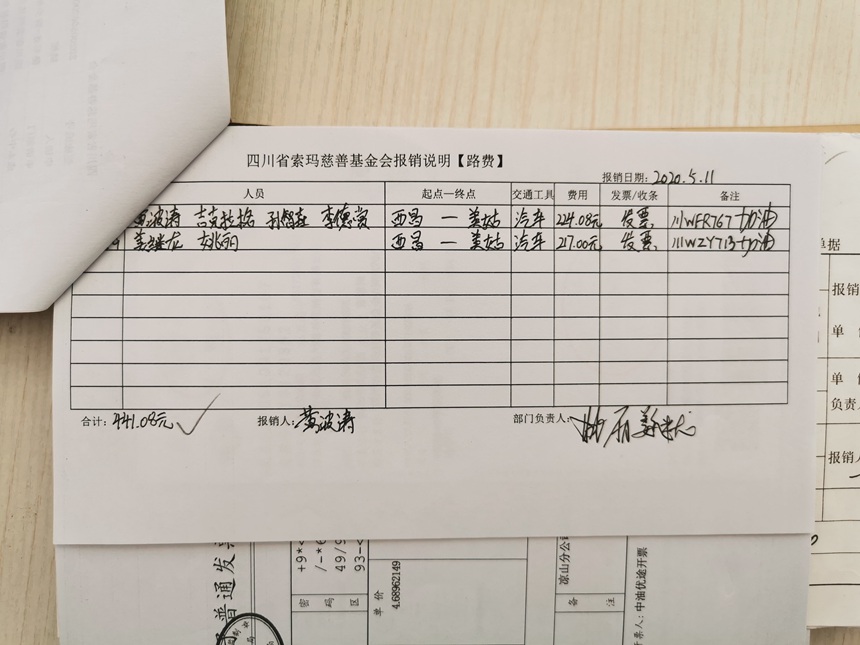 四川省索玛慈善基金会报销说明【路费】
报销日期: 2020.5.11
人员 起点—终点 交通工具 费用 发票/收条 备注
黄波涛 吉克拉格 孙智燕 李德 西昌 — 美姑 汽车 224.08元 发票 川WFR767加油
姜继龙 姚雨 西昌 — 美姑 汽车 217.00元 发票 川WZY713加油
合计: 441.08元 报销人: 黄波涛 部门负责人:
单据
报销
单
单
负责
报销人
普通发票
密码区
+9*<
/-*6
49/9
93-<
单价
4.68962149
凉山分公司
备注
开票人: 中油优途开票